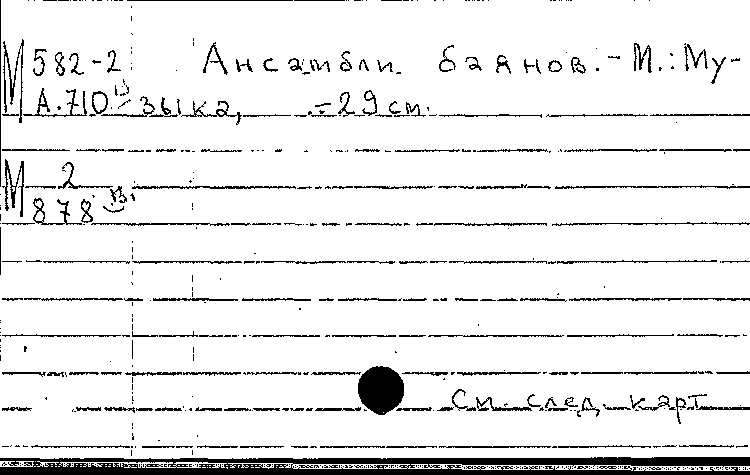 М 582-2 Ансамбли баянов. - М.: Му-
А.710 зыка, . - 29 см.
М 2
878
См. след. карт